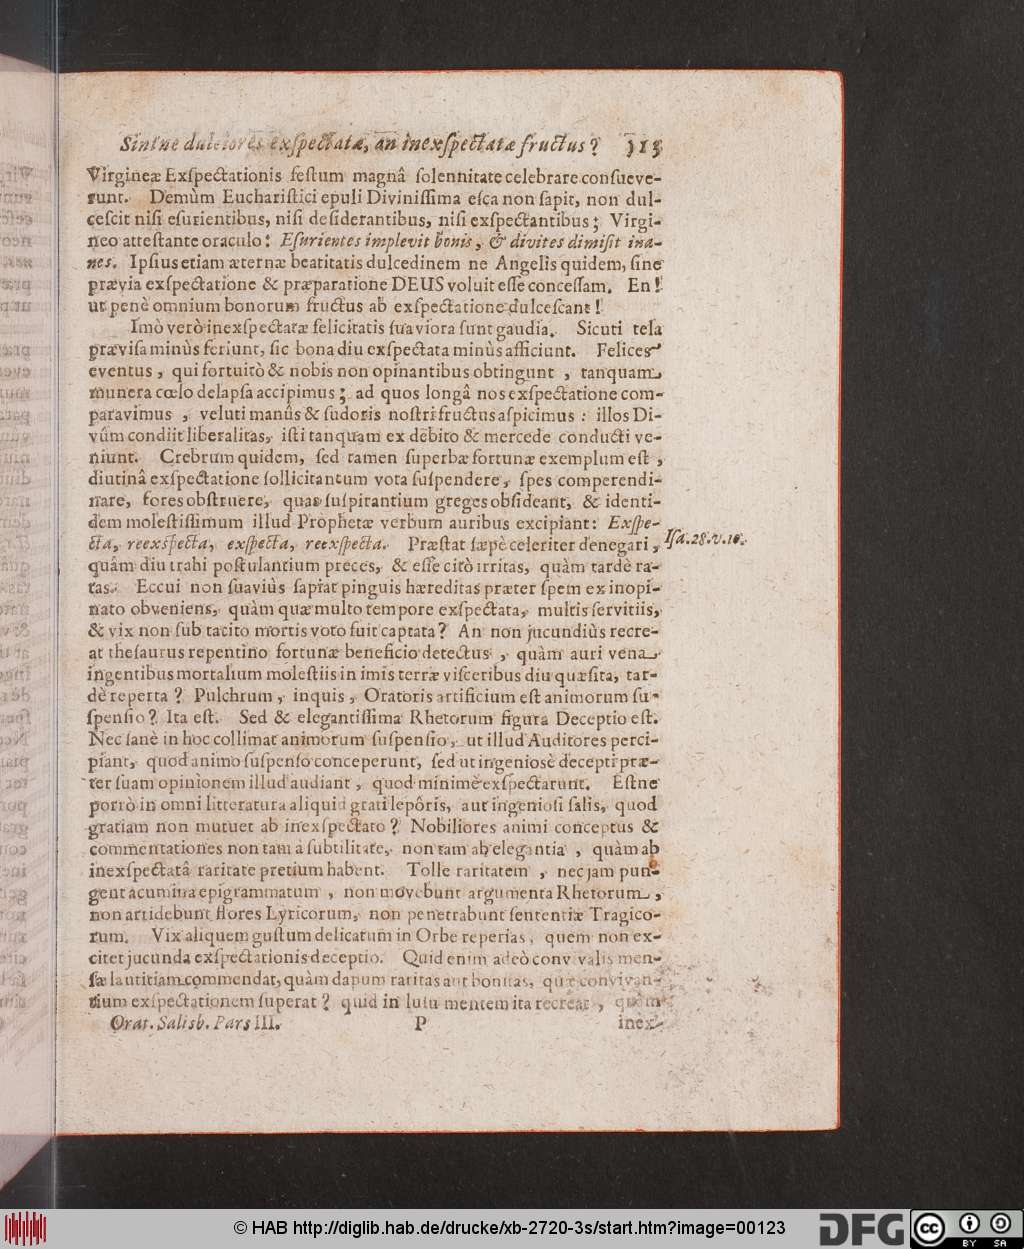 Sintne dulciores exſpectatæ, an inexſpectatæ fructus? 113
Virgineæ Exſpectationis feſtum magnâ ſolennitate celebrare conſueve-
runt. Demùm Euchariſtici epuli Diviniſſima eſca non ſapit, non dul-
ceſcit niſi eſurientibus, niſi deſiderantibus, niſi exſpectantibus; Virgi-
neo atteſtante oraculo: Eſurientes implevit bonis, & divites dimiſit ina-
nes. Ipſius etiam æternæ beatitatis dulcedinem ne Angelis quidem, ſine
prævia exſpectatione & præparatione DEUS voluit eſſe conceſſam. En!
ut penè omnium bonorum fructus ab exſpectatione dulceſcant!
Imò verò inexſpectatæ felicitatis ſuaviora ſunt gaudia. Sicuti tela
præviſa minùs feriunt, ſic bona diu exſpectata minùs afficiunt. Felices
eventus, qui fortuitò & nobis non opinantibus obtingunt, tanquam
munera cœlo delapſa accipimus; ad quos longâ nos exſpectatione com-
paravimus, veluti manûs & ſudoris noſtri fructus aſpicimus: illos Di-
vûm condiit liberalitas, iſti tanquam ex debito & mercede conducti ve-
niunt. Crebrum quidem, ſed tamen ſuperbæ fortunæ exemplum eſt,
diutinâ exſpectatione ſollicitantum vota ſuſpendere, ſpes comperendi-
nare, fores obſtruere, quas ſuſpirantium greges obſideant, & identi-
dem moleſtiſſimum illud Prophetæ verbum auribus excipiant: Exſpe-
cta, reexſpecta, exſpecta, reexſpecta. Præſtat ſæpè celeriter denegari,
Iſa. 28. v. 10.
quâm diu trahi poſtulantium preces, & eſſe citò irritas, quàm tardè ra-
tas. Eccui non ſuaviùs ſapiat pinguis hæreditas præter ſpem ex inopi-
nato obveniens, quàm quæ multo tempore exſpectata, multis ſervitiis,
& vix non ſub tacito mortis voto fuit captata? An non jucundiùs recre-
at theſaurus repentino fortunæ beneficio detectus, quàm auri vena
ingentibus mortalium moleſtiis in imis terræ viſceribus diu quæſita, tar-
dè reperta? Pulchrum, inquis, Oratoris artificium eſt animorum ſu-
ſpenſio? Ita eſt. Sed & elegantiſſima Rhetorum figura Deceptio eſt.
Nec ſanè in hoc collimat animorum ſuſpenſio, ut illud Auditores perci-
piant, quod animo ſuſpenſo conceperunt, ſed ut ingeniosè decepti præ-
ter ſuam opinionem illud audiant, quod minimè exſpectarunt. Eſtne
porrò in omni litteratura aliquid grati lepôris, aut ingenioſi ſalis, quod
gratiam non mutuet ab inexſpectato? Nobiliores animi conceptus &
commentationes non tam à ſubtilitate, non tam ab elegantia, quàm ab
inexſpectatâ raritate pretium habent. Tolle raritatem, nec jam pun-
gent acumina epigrammatum, non movebunt argumenta Rhetorum,
non arridebunt flores Lyricorum, non penetrabunt ſententiæ Tragico-
rum. Vix aliquem guſtum delicatum in Orbe reperias, quem non ex-
citet jucunda exſpectationis deceptio. Quid enim adeò convivalis men-
ſæ lautitiam commendat, quàm dapum raritas aut bonitas, quæ convivan-
tium exſpectationem ſuperat? quid in luſu mentem ita recreat, quàm
Orat. Salisb. Pars III. P inex-
© HAB http://diglib.hab.de/drucke/xb-2720-3s/start.htm?image=00123
DFG
cc BY SA